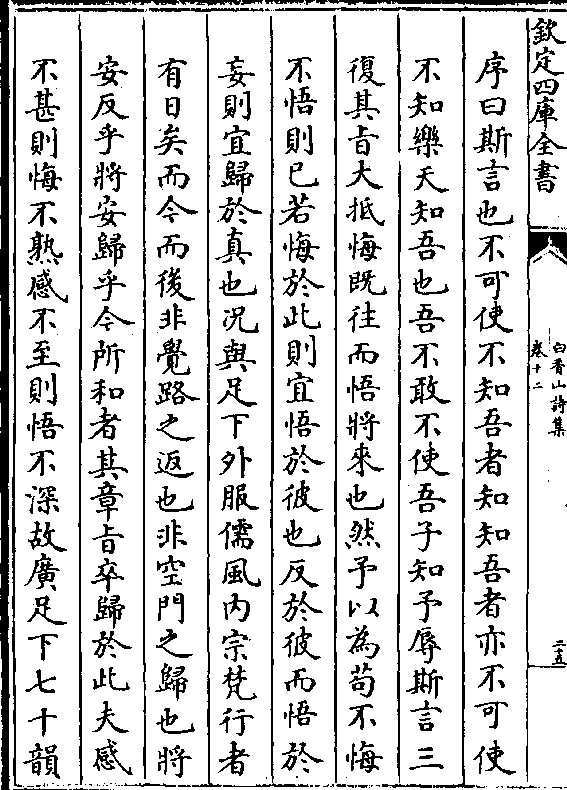 欽定四庫全書
白香山詩集
卷十二
二十五
序曰斯言也不可使不知吾者知知吾者亦不可使
不知樂天知吾也吾不敢不使吾子知予辱斯言三
復其旨大抵悔既往而悟將來也然予以為苟不悔
不悟則已若悔於此則宜悟於彼也反於彼而悟於
妄則宜歸於真也况與足下外服儒風内宗梵行者
有日矣而今而後非覺路之返也非空門之歸也將
安反乎將安歸乎今所和者其章旨卒歸於此夫感
不甚則悔不熟感不至則悟不深故廣足下七十韻